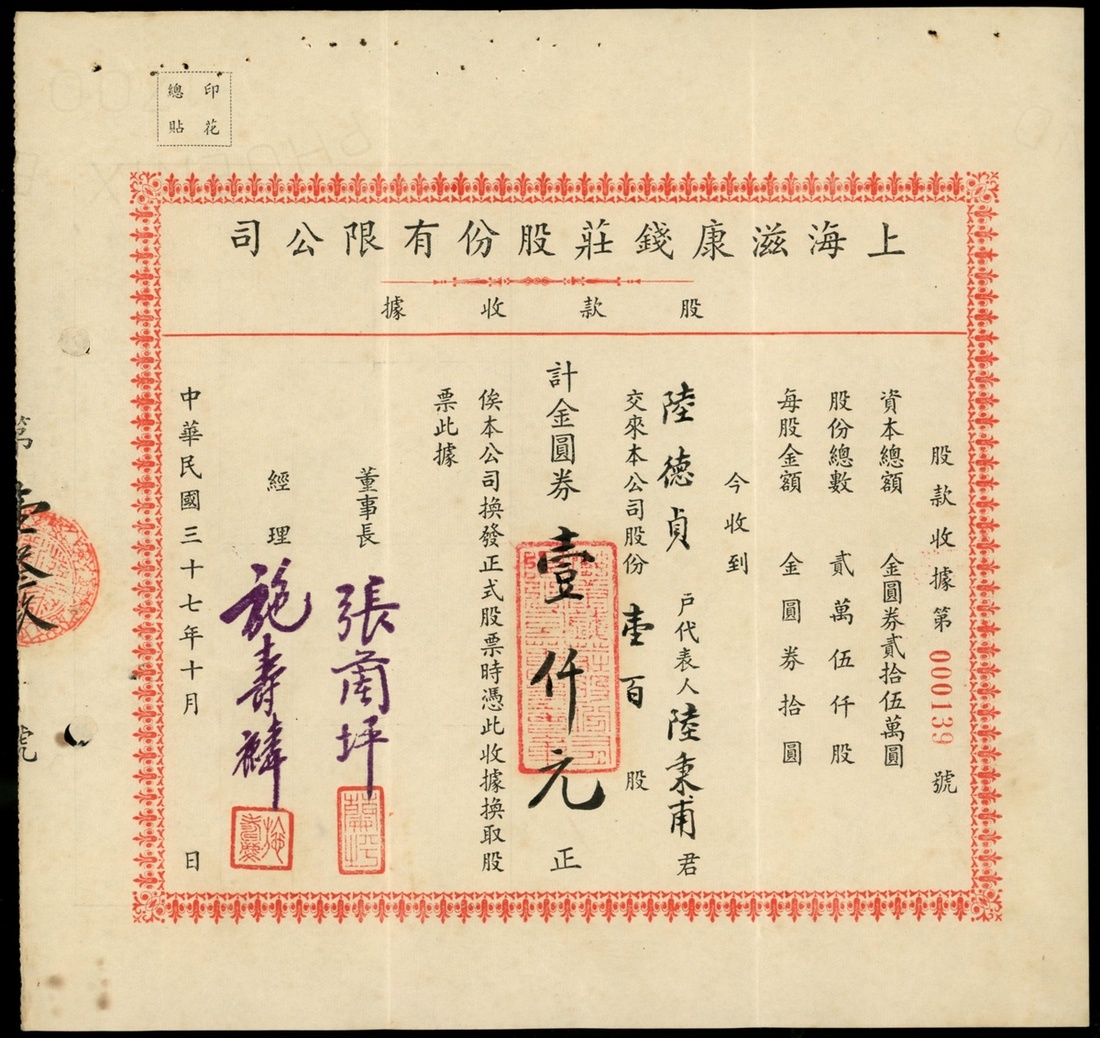 印花
總貼
上海滋康錢莊股份有限公司
股款收據
股款收據第 000139 號
資本總額 金圓券貳拾伍萬圓
股份總數 貳萬伍仟股
每股金額 金圓券拾圓
今收到
陸德貞 戶代表人 陸秉甫 君
交來本公司股份 壹百 股
計金圓券 壹仟元 正
俟本公司換發正式股票時憑此收據換取股
票此據
董事長 張蘭坪
經理 施壽麟
中華民國三十七年十月 日
第
號